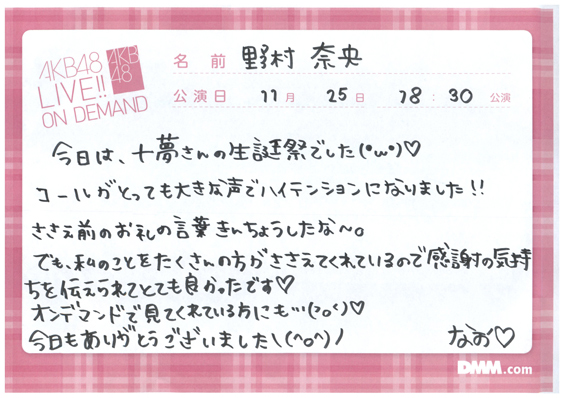 AKB48
LIVE!!
ON DEMAND
AKB
48
名前 野村 奈央
公演日 11月 25日 18:30 公演
今日は、十夢さんの生誕祭でした(•ω•)♡
コールがとっても大きな声でハイテンションになりました!!
ささえ前のお礼の言葉きんちょうしたな〜。
でも、私のことをたくさんの方がささえてくれているので感謝の気持
ちを伝えられてとても良かったです♡
オンデマンドで見てくれている方にも…(>o<)♡
今日もありがとうございました\(^o^)/
なお♡
DMM.com